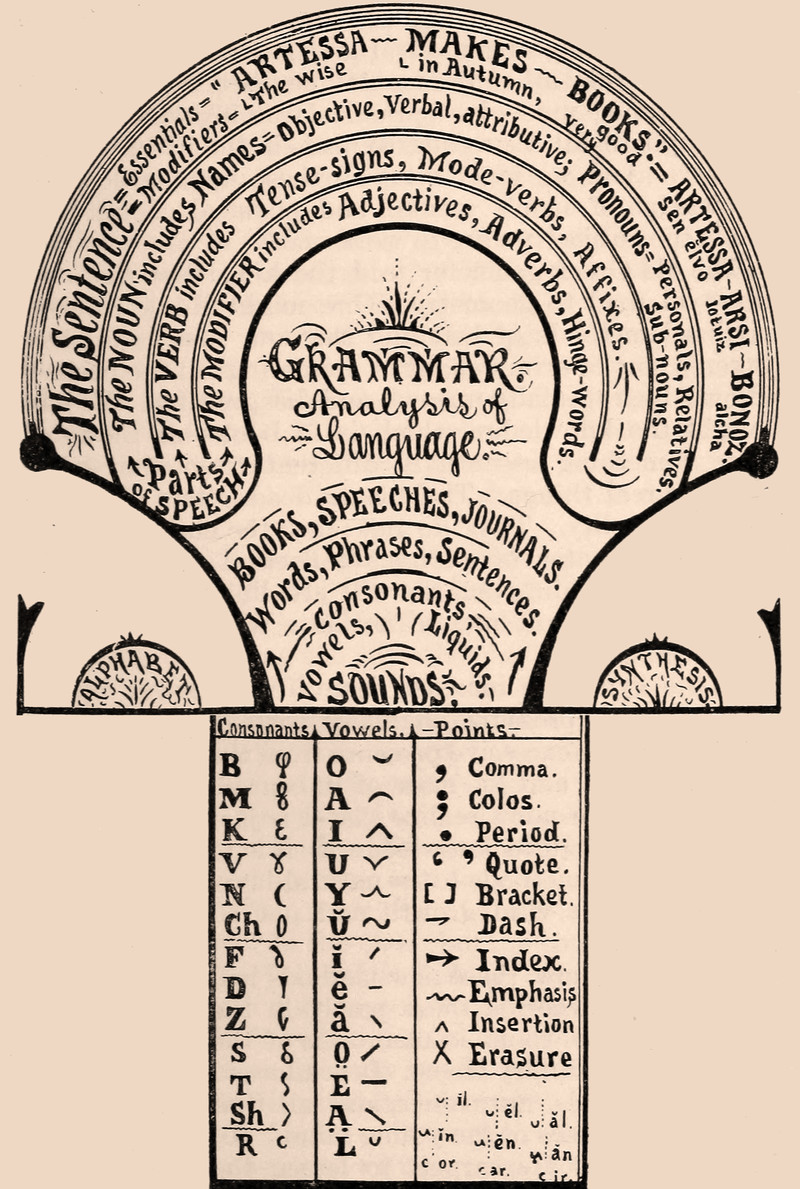 The Sentence = Essentials = " ARTESSA ~ MAKES ~ BOOKS." = ARTESSA-ARSI ~ BONOZ.
= Modifiers = The wise in Autumn, very good sen eivo lotuiz alcha
The NOUN includes Names = Objective, Verbal, attributive; Pronouns = Personals, Relatives.
Sub-nouns.
The VERB includes Tense-signs, Mode-verbs, Affixes.
The MODIFIER includes Adjectives, Adverbs, Hinge-words.
Parts
of SPEECH
GRAMMAR.
Analysis of
Language.
BOOKS, SPEECHES, JOURNALS.
Words, Phrases, Sentences.
Consonants,
Vowels, Liquids.
SOUNDS.
ALPHABET
SYNTHESIS
Consonants Vowels. -Points-
B O , Comma.
M A Colos.
K I . Period.
V U ‘ ’ Quote.
N Y [ ] Bracket.
Ch Ŭ Dash.
F ĭ Index.
D ĕ Emphasis
Z ă ^ Insertion
S O̤ X Erasure
T E
Sh A̤
R L
il. ĕl. ăl.
ĭn. ĕn. ăn
or. ar. ir.